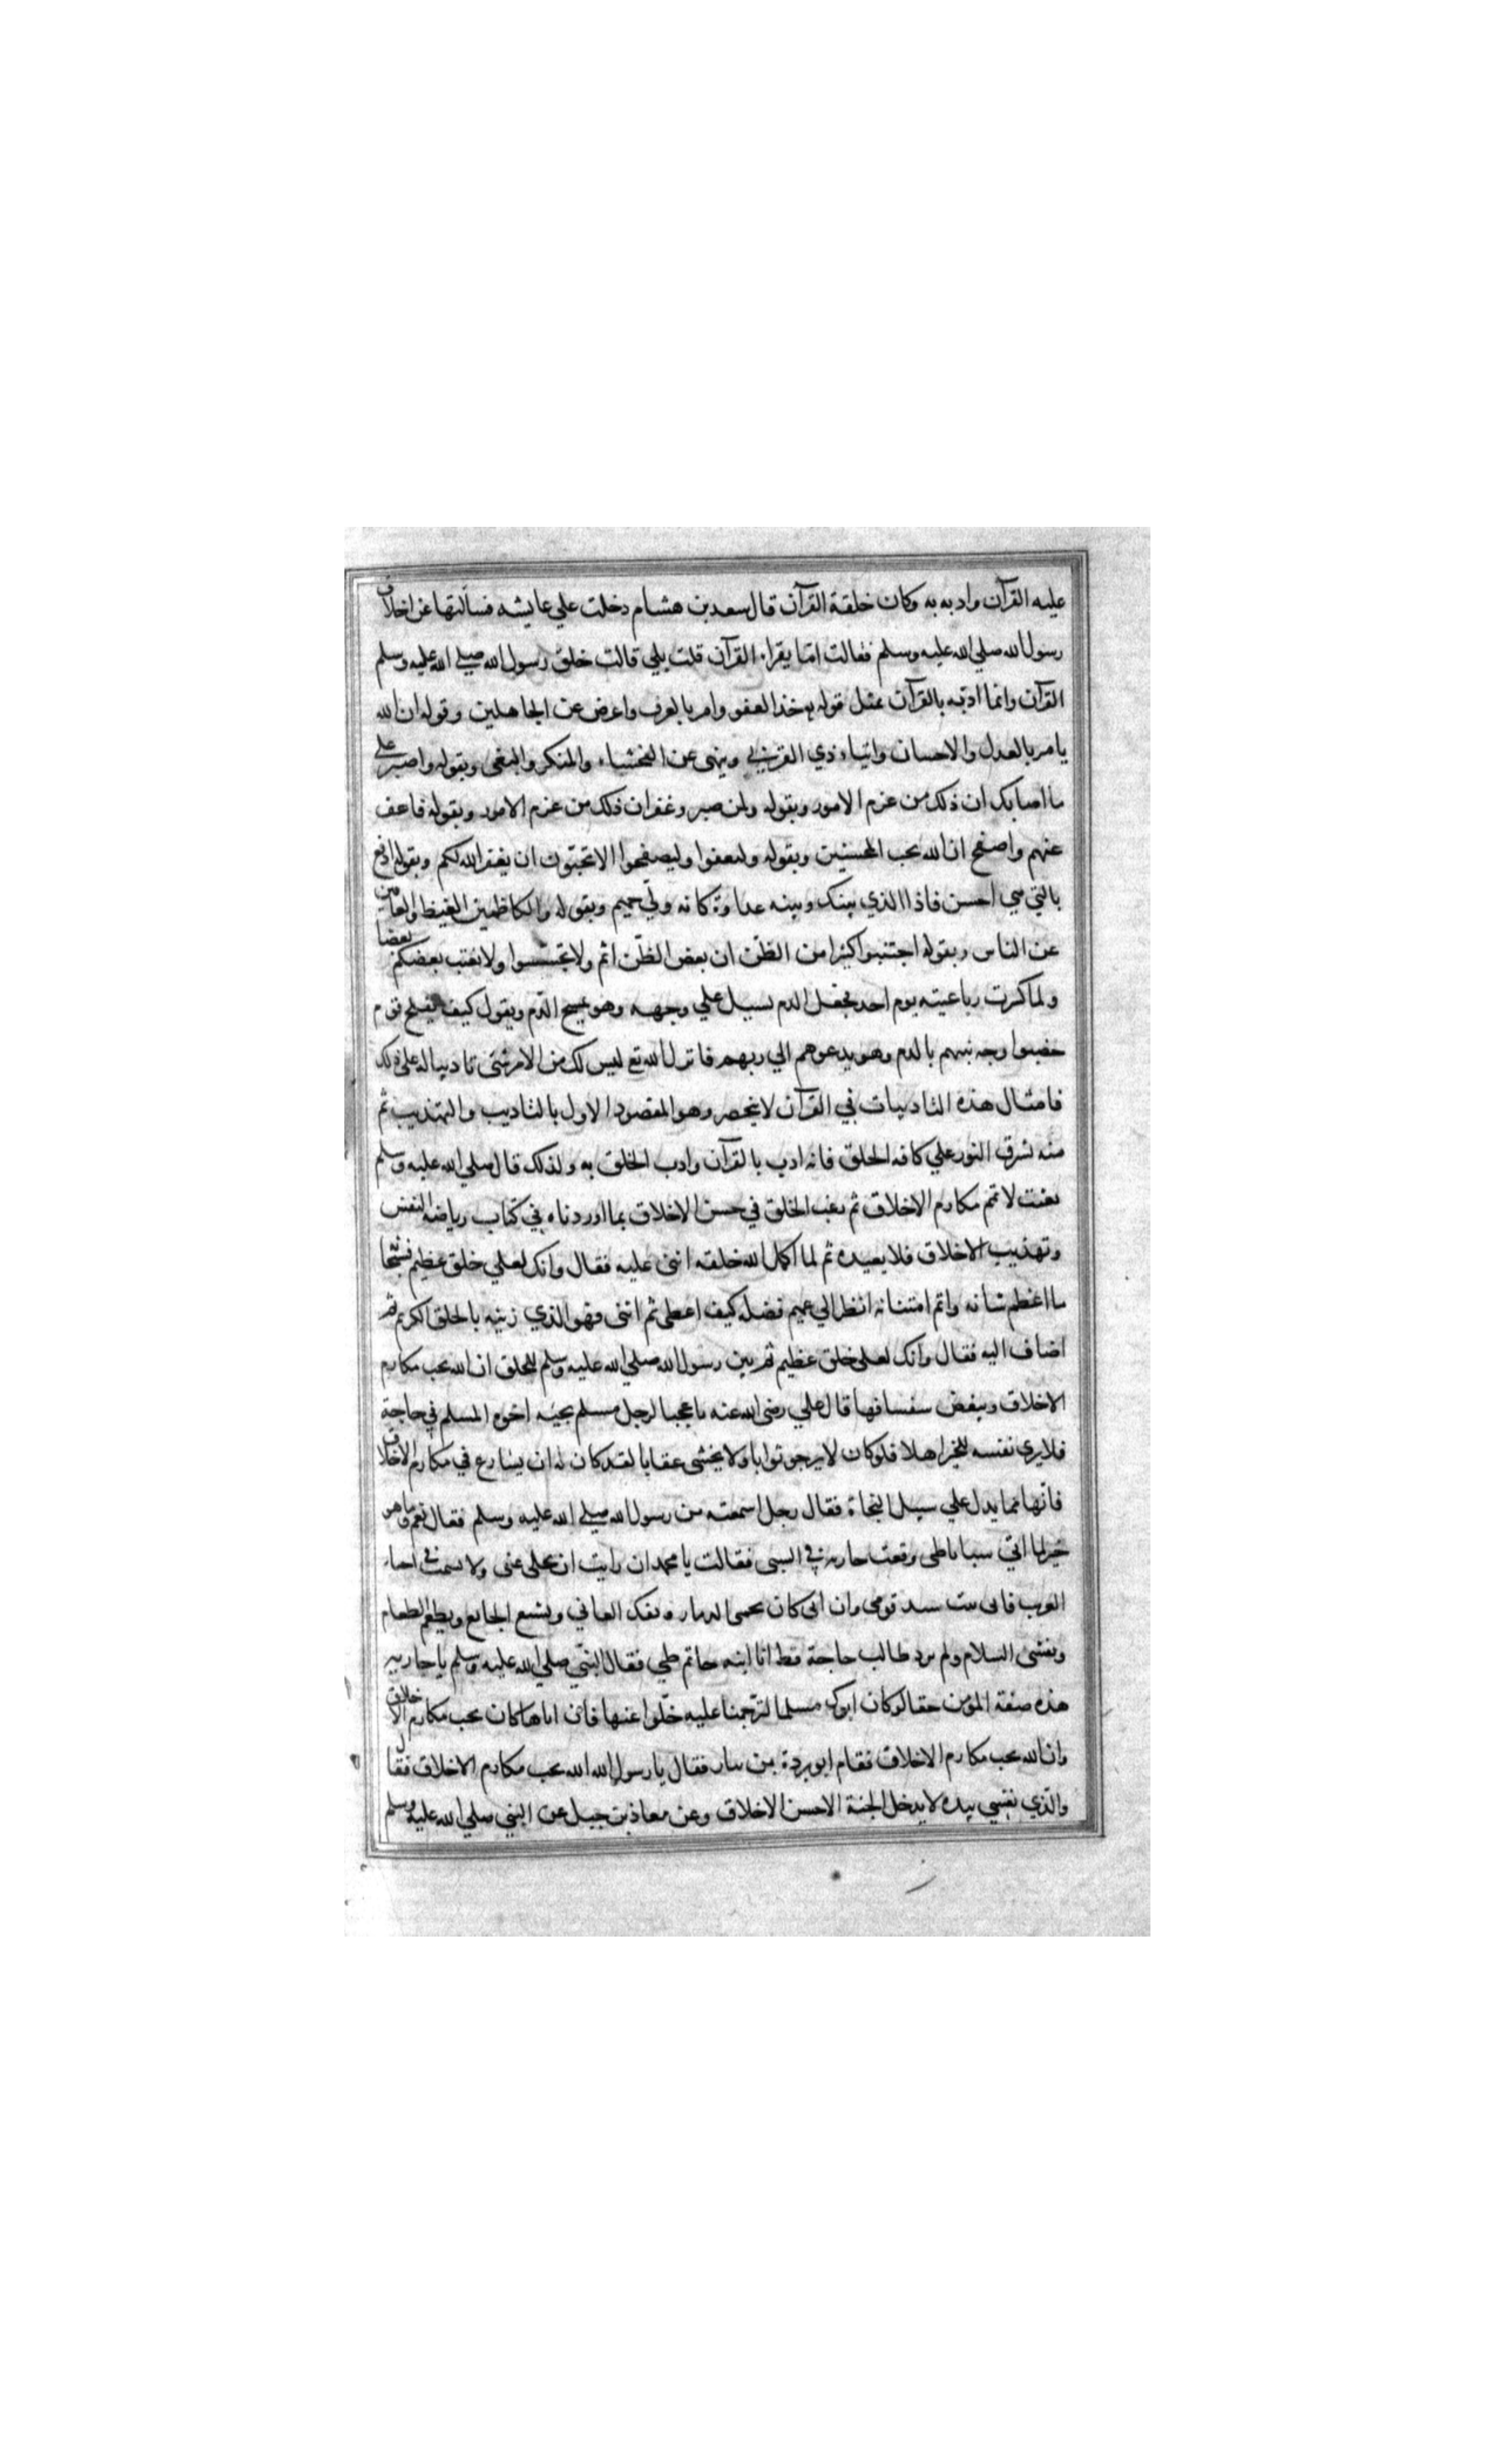 عليه القرآن وادبه به وكان خلقة القرآن قال سعد بن هشام دخلت علي عايشه فسالتها عن اخلاق
رسول الله صلي الله عليه وسلم فقالت امّا يقراء القرآن قلت بلي قالت خلق رسول الله صلے الله عليه وسلم
القرآن وانما ادبّه بالقرآن بمثل قوله خذ العفو وامر بالعرف واعرض عن الجاهلين وقوله ان الله
يامر بالعدل والاحسان وايتاء ذي القربي وينهى عن الفحشاء والمنكر والبغى وبقوله واصبر على
ما اصابك ان ذلك من عزم الامور وبقوله ولمن صبر وغفر ان ذلك من عزم الامور وبقوله فاعف
عنهم واصفح ان الله يحب المحسنين وبقوله وليعفوا وليصفحوا الا تحبّون ان يغفر الله لكم وبقوله ادفع
بالتي هي احسن فاذا الذي بينك وبينه عداوة كانه وليّ حميم وبقوله والكاظمين الغيظ والعافين
عن الناس وبقوله اجتنبوا كثيرا من الظنّ ان بعض الظنّ اثم ولا تجسّسوا ولا يغتب بعضكم بعضا
ولما كسرت رباعيته يوم احد فجعل الدم يسيل علي وجهه وهو يمسح الدّم ويقول كيف يفلح قوم
خضبوا وجه نبيهم بالدم وهو يدعوهم الي ربهم فانزل الله تع ليس لك من الامر شئ تاديبا له على ذلك
فامثال هذه التاديبات في القرآن لا ينحصر وهو المقصود الاول بالتاديب والتهذيب ثم
منه يشرق النور علي كافه الخلق فانه ادب بالقرآن وادب الخلق به ولذلك قال صلي الله عليه وسلم
بعثت لاتمم مكارم الاخلاق ثم رغب الخلق في حسن الاخلاق بما اوردناه في كتاب رياضه النفس
وتهذيب الاخلاق فلا يعيده ثم لما اكمل الله خلقه اثنى عليه فقال وانك لعلي خلق عظيم فسبحا
ما اعظم شانه واتم امتنانه انظر الي عميم فضله كيف اعطى ثم اثنى فهو الذي زينه بالخلق الكريم ثم
اضاف اليه فقال وانك لعلى خلق عظيم ثم بين رسول الله صلي الله عليه وسلم للخلق ان الله يحب مكارم
الاخلاق ويبغض سفسافها قال علي رضى الله عنه يا عجبا لرجل مسلم يجيئه اخوه المسلم في حاجة
فلا يرى نفسه للخير اهلا فلو كان لا يرجو ثوابا ولا يخشى عقابا لقد كان له ان يسارع في مكارم الاخلاق
فانّها مما يدل علي سبيل النجاة فقال رجل اسمعته من رسول الله صلے الله عليه وسلم فقال نعم وما هو
خير لما اتي سبايا طى وقعت جاريه في السبى فقالت يا محمد ان رايت ان تخلى عنى ولا تشمت في احياء
العرب فانى بنت سيد قومى وان ابى كان يحمى الذمار ويفك العاني ويشبع الجايع ويطعم الطعام
ويفشى السلام ولم يرد طالب حاجة قط انا ابنه حاتم طي فقال النبّي صلي الله عليه وسلم يا جاريه
هذه صفة المؤمن حقا لو كان ابوك مسلما لترّحمنا عليه خلّوا عنها فان اباها كان يحب مكارم الاخلاق
وان الله يحب مكارم الاخلاق فقام ابو بردة بن نيار فقال يا رسول الله الله يحب مكارم الاخلاق فقال
والذّي نفسي بيده لا يدخل الجنة الا حسن الاخلاق وعن معاذ بن جبل عن النبي صلي الله عليه وسلم